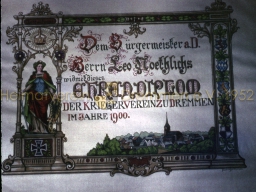 Dem Bürgermeister a.D.
Herrn Leo Noethlichs
widmet dieses
EHRENDIPLOM
DER KRIEGERVEREIN ZU DREMMEN
IM JAHRE 1900.